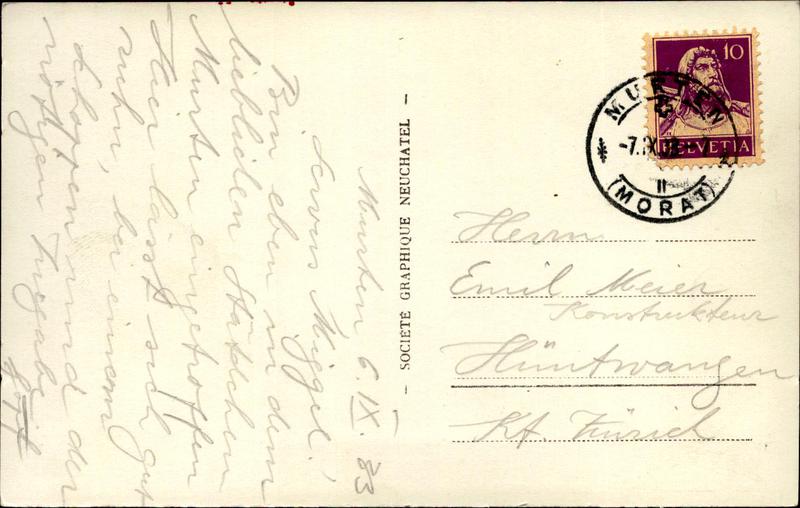 Murten 6. IX. 33
Servus Miggel!
Bin eben in dem
lieblichen Städtchen
Murten eingetroffen
Hier lässt sich gut
ruhn, bei einem
Schoppen und der
nötigen Zugabe
— SOCIÉTÉ GRAPHIQUE NEUCHATEL —
10
HELVETIA
MURTEN
-7.IX.
II
(MORAT)
Herrn
Emil Meier
Konstrukteur
Hüntwangen
Kt. Zürich